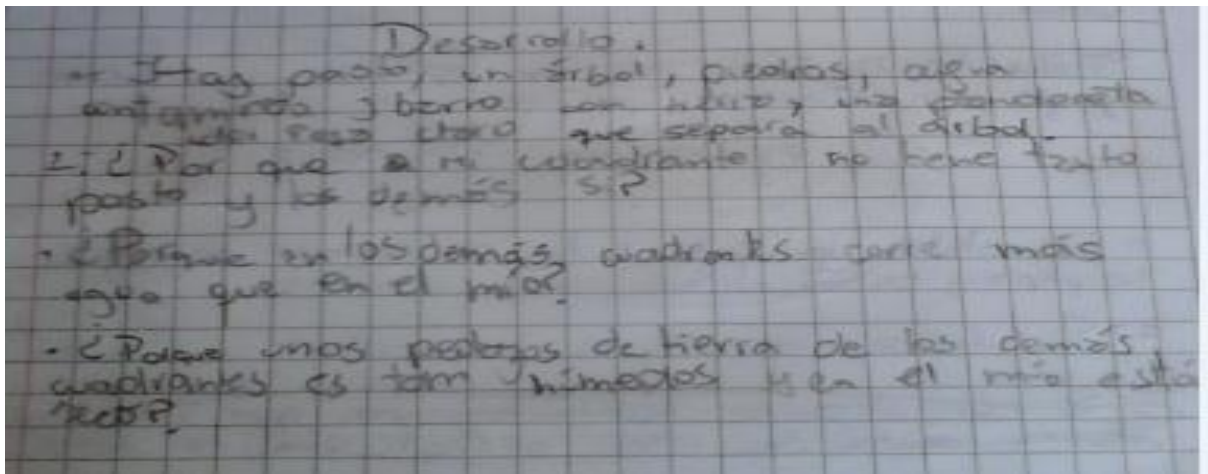 Desarrollo.
- Hay pasto, un árbol, piedras, agua
y berro con una pendiente
que separa al árbol.
2: ¿Por que mi cuadrante no tiene tanto
pasto y los demás si?
• ¿Porque en los demás cuadrantes corre más
agua que en el mío?
• ¿Porque unos pedazos de tierra de los demás
cuadrantes es tam húmedos y en el mío está
seco?